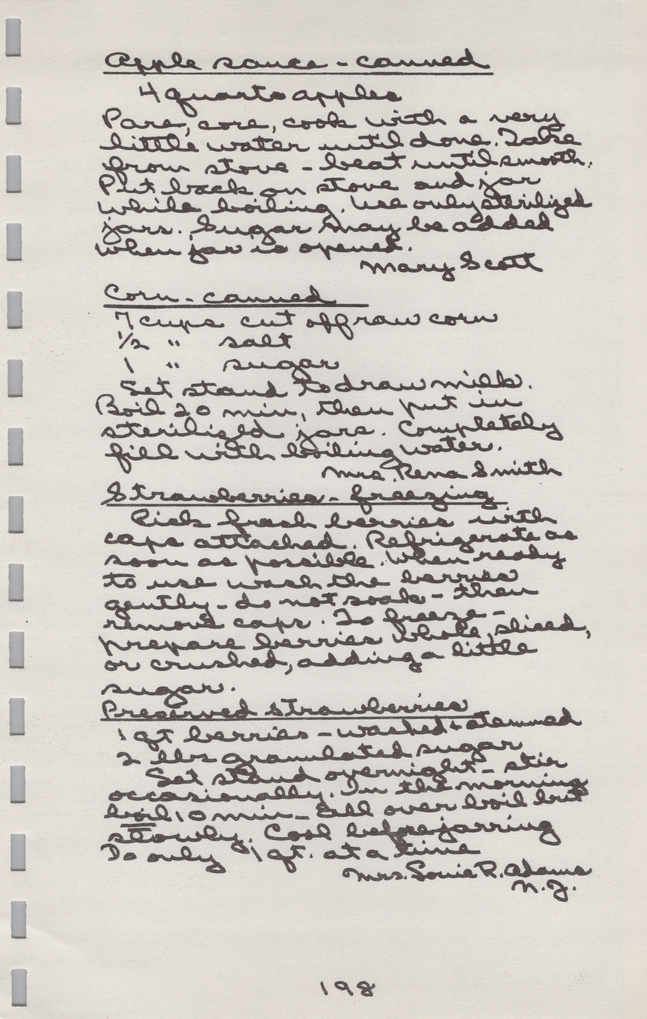 Apple sauce - canned
4 quarts apples
Pare, core, cook with a very
little water until done. Take
from stove - beat until smooth.
Put back on stove and jar
while boiling. Use only sterilized
jars. Sugar may be added
when jar is opened.
Mary Scott
Corn - canned
7 cups cut off raw corn
1/2 " salt
1 " sugar
Let stand to draw milk.
Boil 20 min, then put in
sterilized jars. Completely
fill with boiling water.
Mrs. Rena Smith
Strawberries - freezing
Pick fresh berries with
caps attached. Refrigerate as
soon as possible. When ready
to use wash the berries
gently - do not soak - then
remove caps. To freeze -
prepare berries whole, sliced,
or crushed, adding a little
sugar.
Preserved Strawberries
1 qt berries - washed + stemmed
2 lbs granulated sugar
Let stand overnight - stir
occasionally. In the morning
boil 10 min - all over boil but
slowly. Cool before jarring
Do only 1 qt. at a time
Mrs. Louie R. Adams
N.J.
198